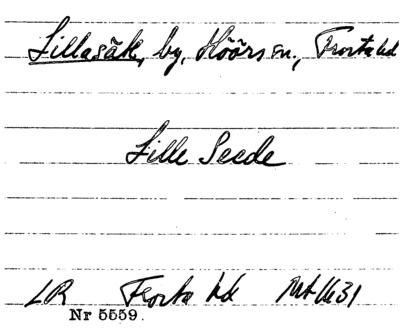 Lillasäk, by, Höörs sn., Frosta hd
Lille Seede
LR Frosta hd Mt 1631
Nr 5559.